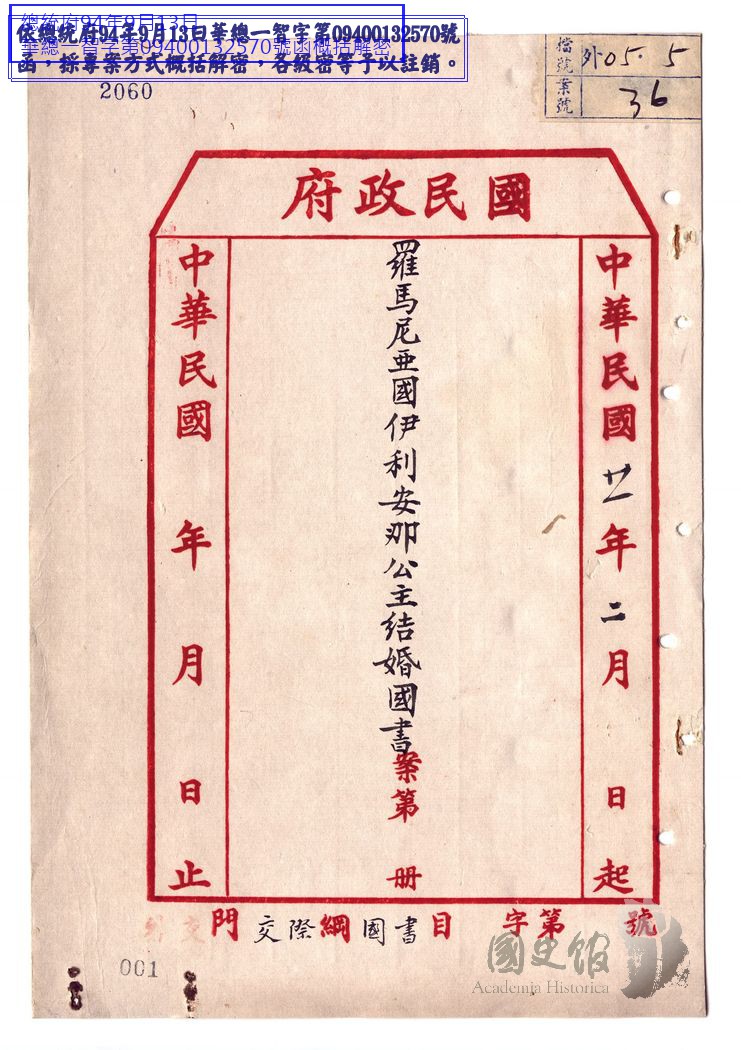 總統府94年9月13日
華總一智字第09400132570號函概括解密
依總統府94年9月13日華總一智字第09400132570號
函，採專案方式概括解密，各級密等予以註銷。
2060
檔號 外05.5
案號 36
國民政府
中華民國廿一年二月 日起
羅馬尼亞國伊利安那公主結婚國書案第 冊
中華民國 年 月 日止
號 第 字 目 書國 綱 際交 門 交外
001
國史館
Academia Historica